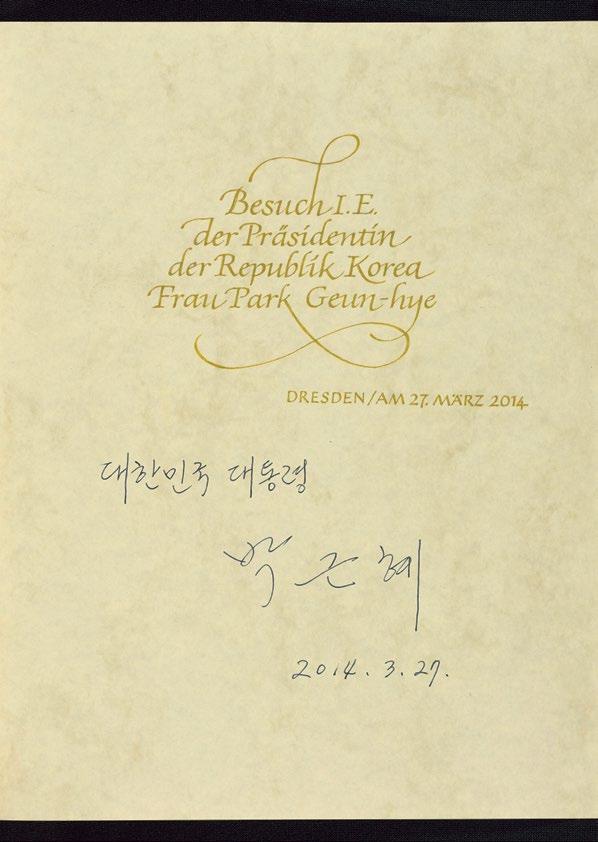 Besuch I.E.
der Präsidentin
der Republik Korea
Frau Park Geun-hye
DRESDEN/AM 27. MÄRZ 2014
대한민국 대통령
박근혜
2014. 3. 27.